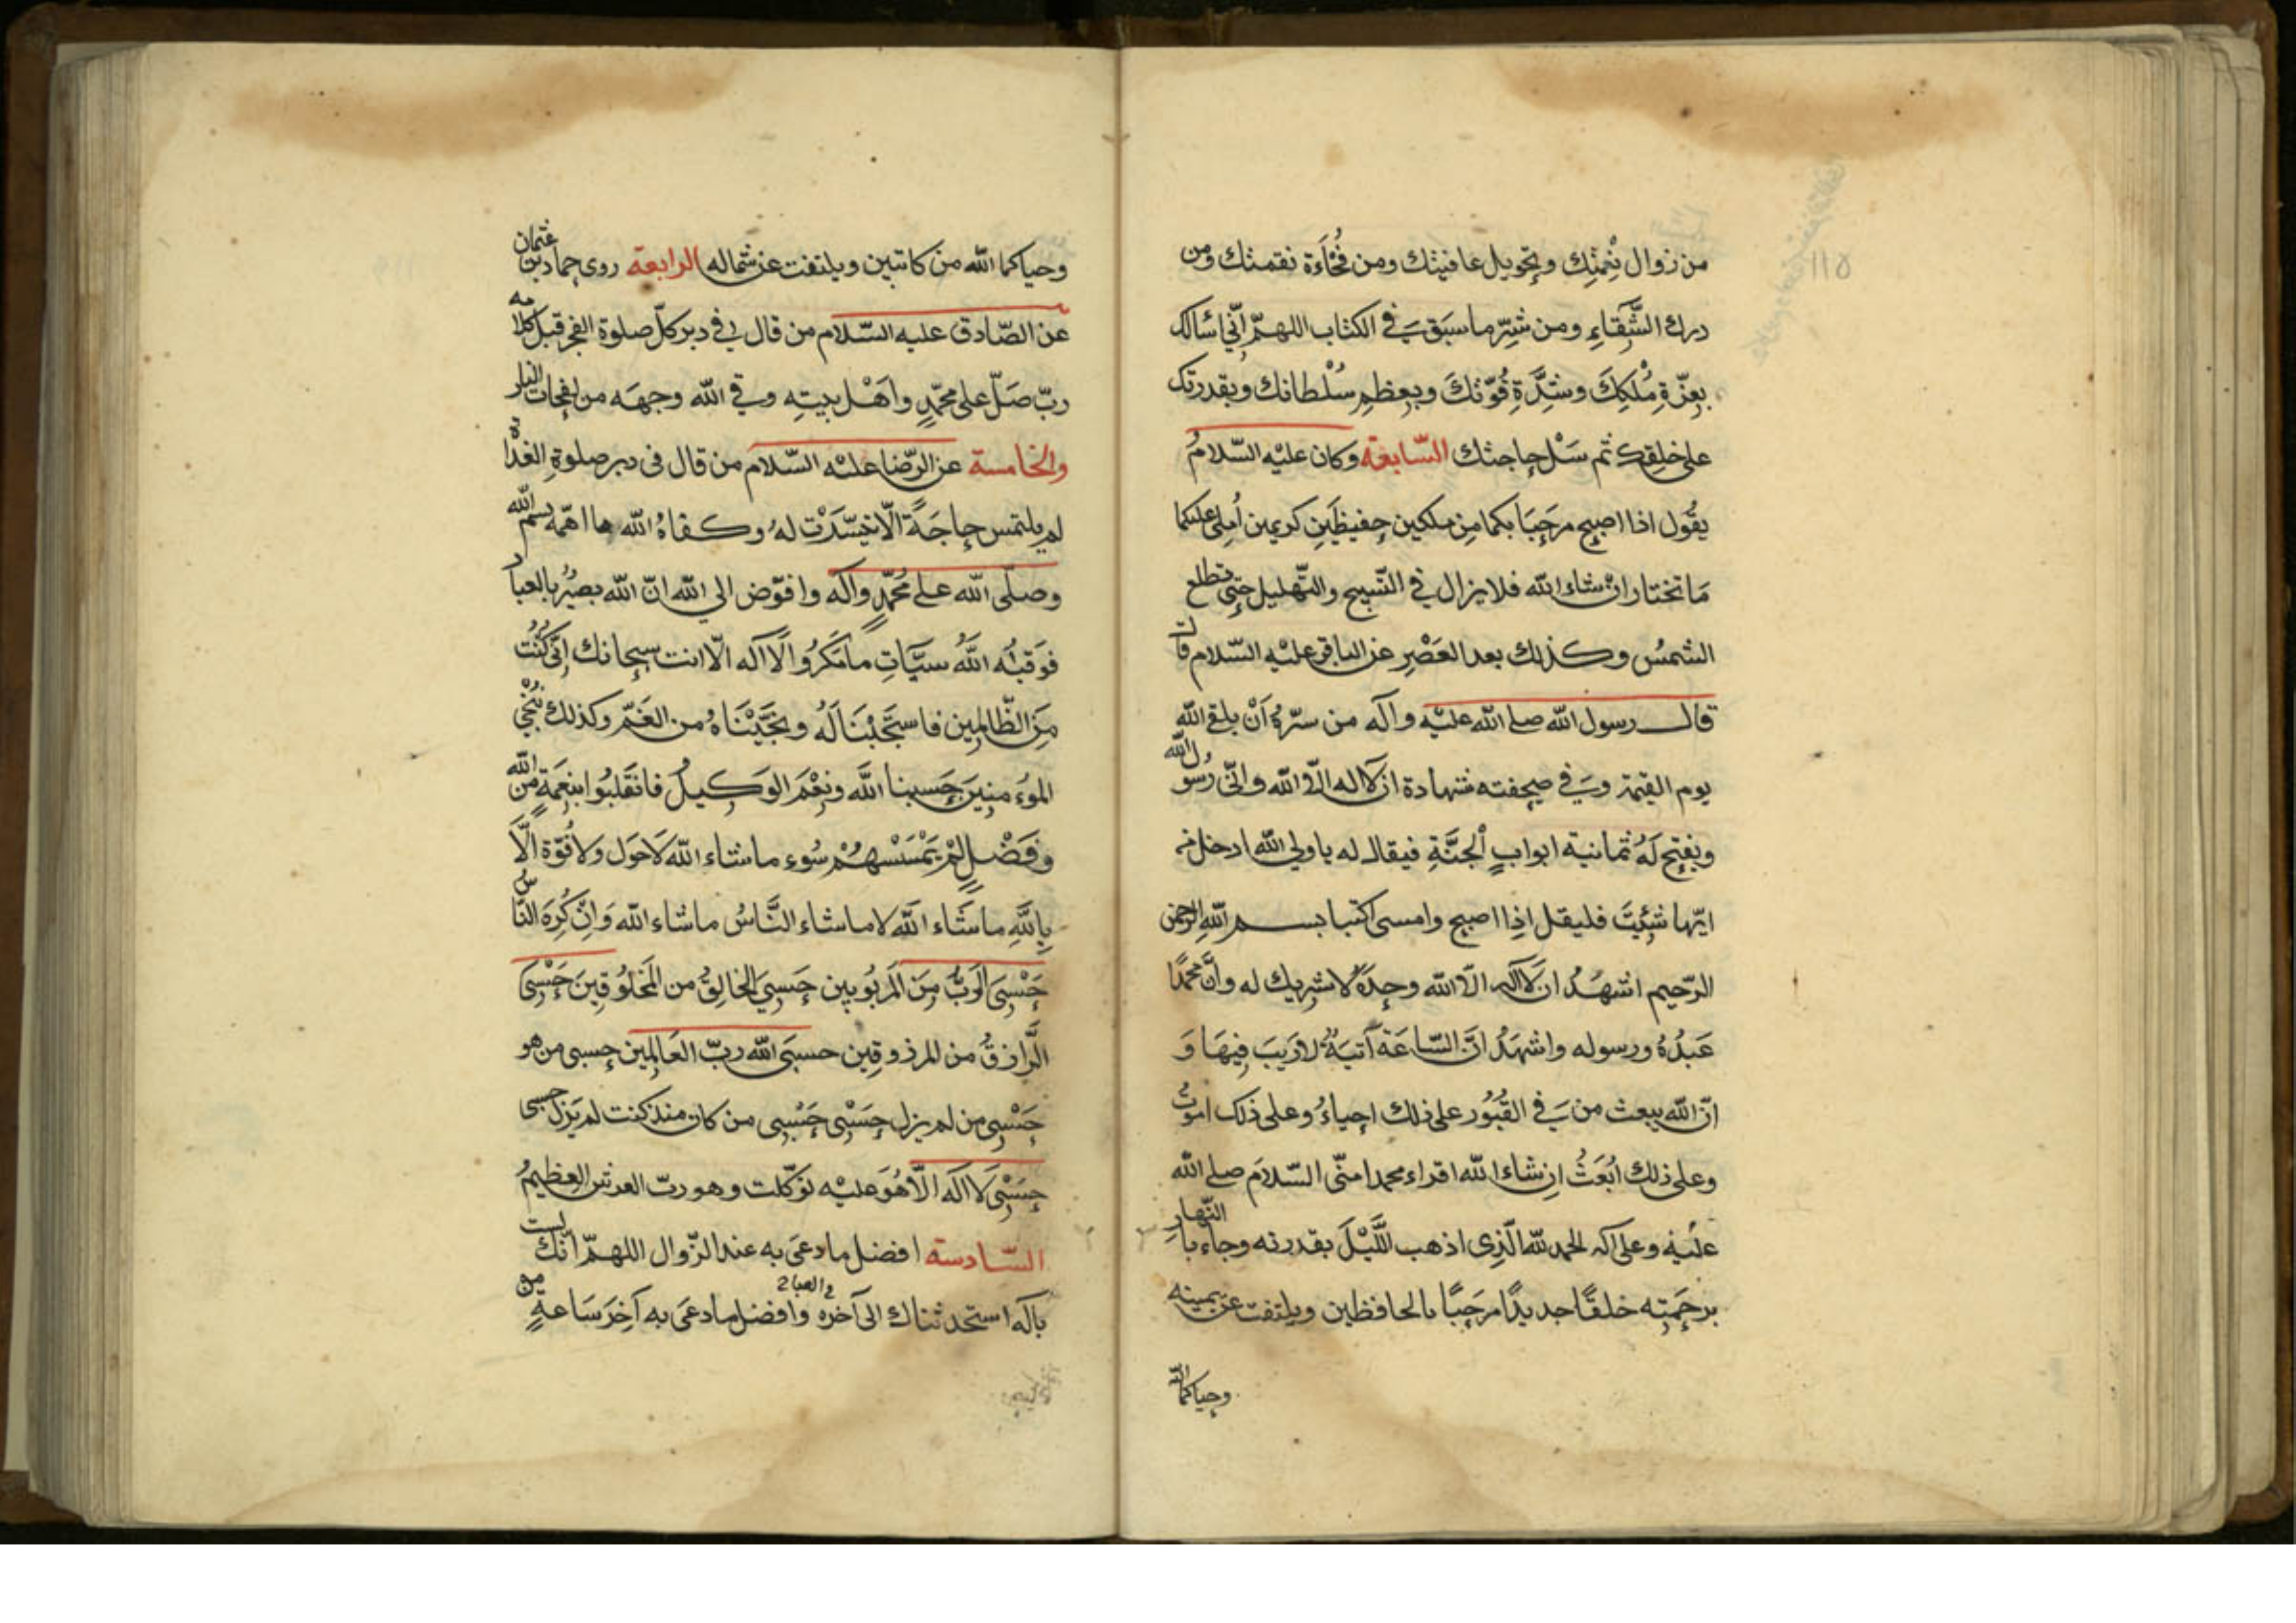 من زوال نِعْمَتِك وتحويل عافيتك ومن فُجَاءَة نقمتك ومن
درك الشَّقَاءِ ومن شرّ ما سبَق فى الكتاب اللهمّ انّى اسالك
بعزّةِ مُلْكِكَ وشِدَّةِ قُوّتكَ وبعظم سُلْطانك وبقدرتك
على خلقك ثم سَلْ حاجتك السّابعة وكان عليْه السّلامُ
يقُول اذا اصبح مرحَبَا بكما مِن ملكين حفيظَينِ كريمين أملى عليكما
مَا تختار ان شاء الله فلا يزال فى التّسبيح والتّهليل حتى تطلع
الشمسُ وكذلك بعد العَصْرِ عن الباقر عليْه السّلام قال
قال رسول الله صلى الله عليْه وآله من سرّهُ اَنْ يلقى الله
يوم القيٰمة وفى صحيفته شهادة ان لا اله الّا الله وانّى رسُول الله
ويفتح لَهُ ثمانية ابوابِ الْجنَّةِ فيقال له يا ولى الله ادخل من
ايّها شِئتَ فليقل اذِا اصبح وامسى اكتبا بسم اللهِ الرحمن
الرّحيم اشهَدُ ان لَا اله الّا الله وحدَهُ لا شريك له وأنّ محمّدًا
عَبدُهُ ورسوله واشهَدُ انَّ السّاعَة آتيَةٌ لا رَيبَ فِيهَا وَ
انّ الله يبعث من فى القُبُور على ذلك احياءُ وعلى ذلك اموتُ
وعلى ذلك ابُعَثُ ان شاء الله اقراء محمدا منّى السّلامَ صلى الله
عليْه وعلى آله الحمد لله الّذِى اذهب اللَّيْلَ بقدرته وجاء بالنّهار
برحْمَتِه خلقًا جديدًا مرحَبًا بالحافظين ويلتفت عن يمينه
وحياكما الله
وحياكما الله من كاتبين ويلتفت عن شماله الرابعة روى حماد بن عثمان
عن الصّادق عليه السّلام من قال فى دبر كلّ صلوة الفجر قبل كلامه
ربّ صَلّ على محمّدٍ واَهْل بيتِه وقى الله وجهَه من نفحات النار
والخامسة عن الرّضا عليْه السّلام من قال فى دبر صلوةِ الغدَاة
لم يلتمس حاجَةً الّا تيسّرَت لهُ وكفاهُ الله ما اهمّه بسم الله
وصلّى الله على مُحَمّدٍ وآله وافوّض الى الله انّ الله بصيرٌ بالعباد
فوَقيٰه اللَّهُ سيّاتِ ما مَكَرُوا لَا اله الّا انت سبحانك اِنّى كُنْتُ
مِنَ الظّالمِين فاستَجَبْنَا لَهُ ونجَّيْنَاهُ من الغَمّ وكذلك نُنْجِى
المؤمنِينَ حَسبنا اللَّه ونِعْمَ الوَكيلُ فانقَلبُوا بنِعمَةٍ من الله
وفَضْلٍ لَمْ يَمْسَسْهُمْ سُوء ما شاء الله لَا حَول ولا قُوّةَ الَّا
بِاللَّهِ ما شَاء اللَّه لا ما شاء النَّاسُ ما شاء الله وَاِنْ كَرِهَ النّاسُ
حَسْبِىَ الرَبُّ مِنَ المَربُوبين حَسبىَ الخالقُ من المَخلُوقِينَ حَسْبىَ
الرَّازقُ من المرزوقِين حسبَى الله ربّ العَالمِين حسبى من هو
حَسْبِى من لم يزل حَسْبى حَسْبِى من كان منذ كنت لم يَزل حسبى
حَسْبِى لَا اله الّا هُوَ عليْه توكّلت وهو ربّ العرش العظيمُ
السّادسته افضل ما دعىَ به عند الزّوال اللهمّ انّك لست
باله استحدثناك الى آخره وافضل ما دعىَ به آخِرَ سَاعةٍ من